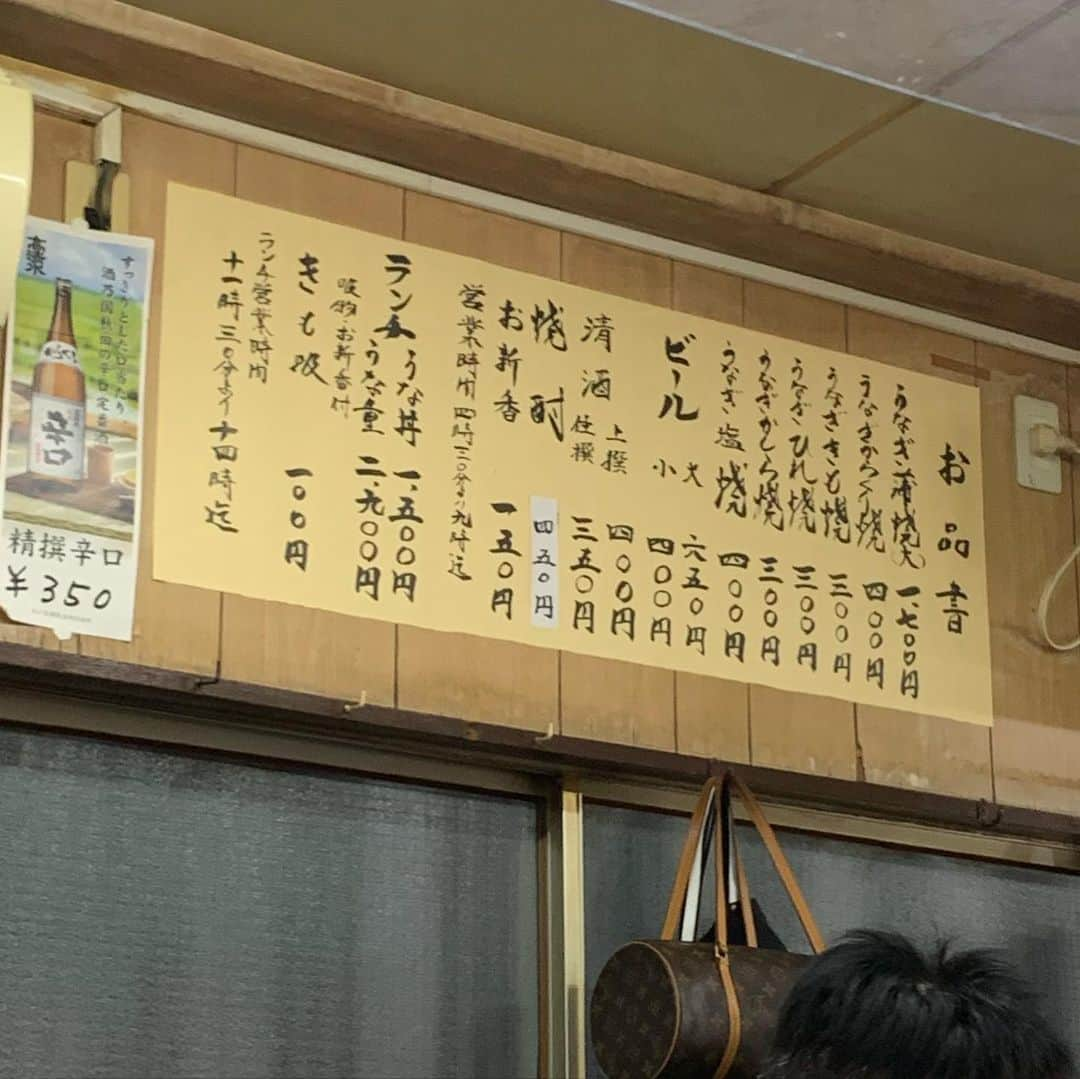 お品書
うなぎ蒲焼(大) 一、七〇〇円
うなぎからくり焼 四〇〇円
うなぎきも焼 三〇〇円
うなぎひれ焼 三〇〇円
うなぎかしら焼 三〇〇円
うなぎ塩焼 四〇〇円
ビール 大 六五〇円
小 四〇〇円
清酒 上撰 四〇〇円
佳撰 三五〇円
焼酎 四五〇円
お新香 一五〇円
営業時間 四時三〇分より九時迄
ランチ うな丼 一、五〇〇円
うな重 二、九〇〇円
吸物・お新香付
きも吸 一〇〇円
ランチ営業時間
十一時三〇分より十四時迄
高清水
すっきりとした口当たり
酒乃国秋田の辛口定番酒
辛口
精撰辛口
¥350